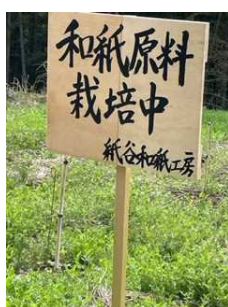 和紙原料
栽培中
紙谷和紙工房